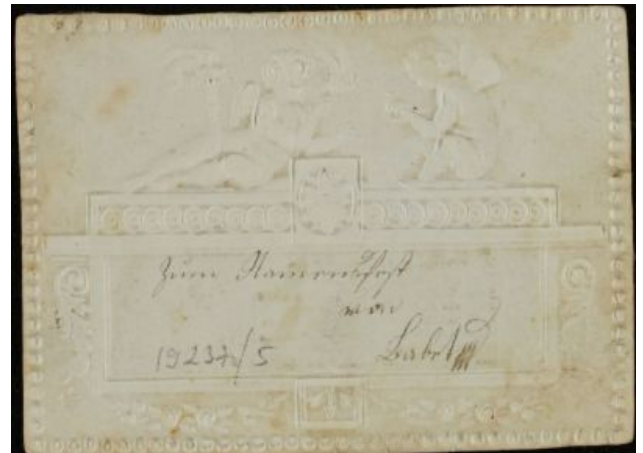 Zum Namensfest
von
19237/5 Babet